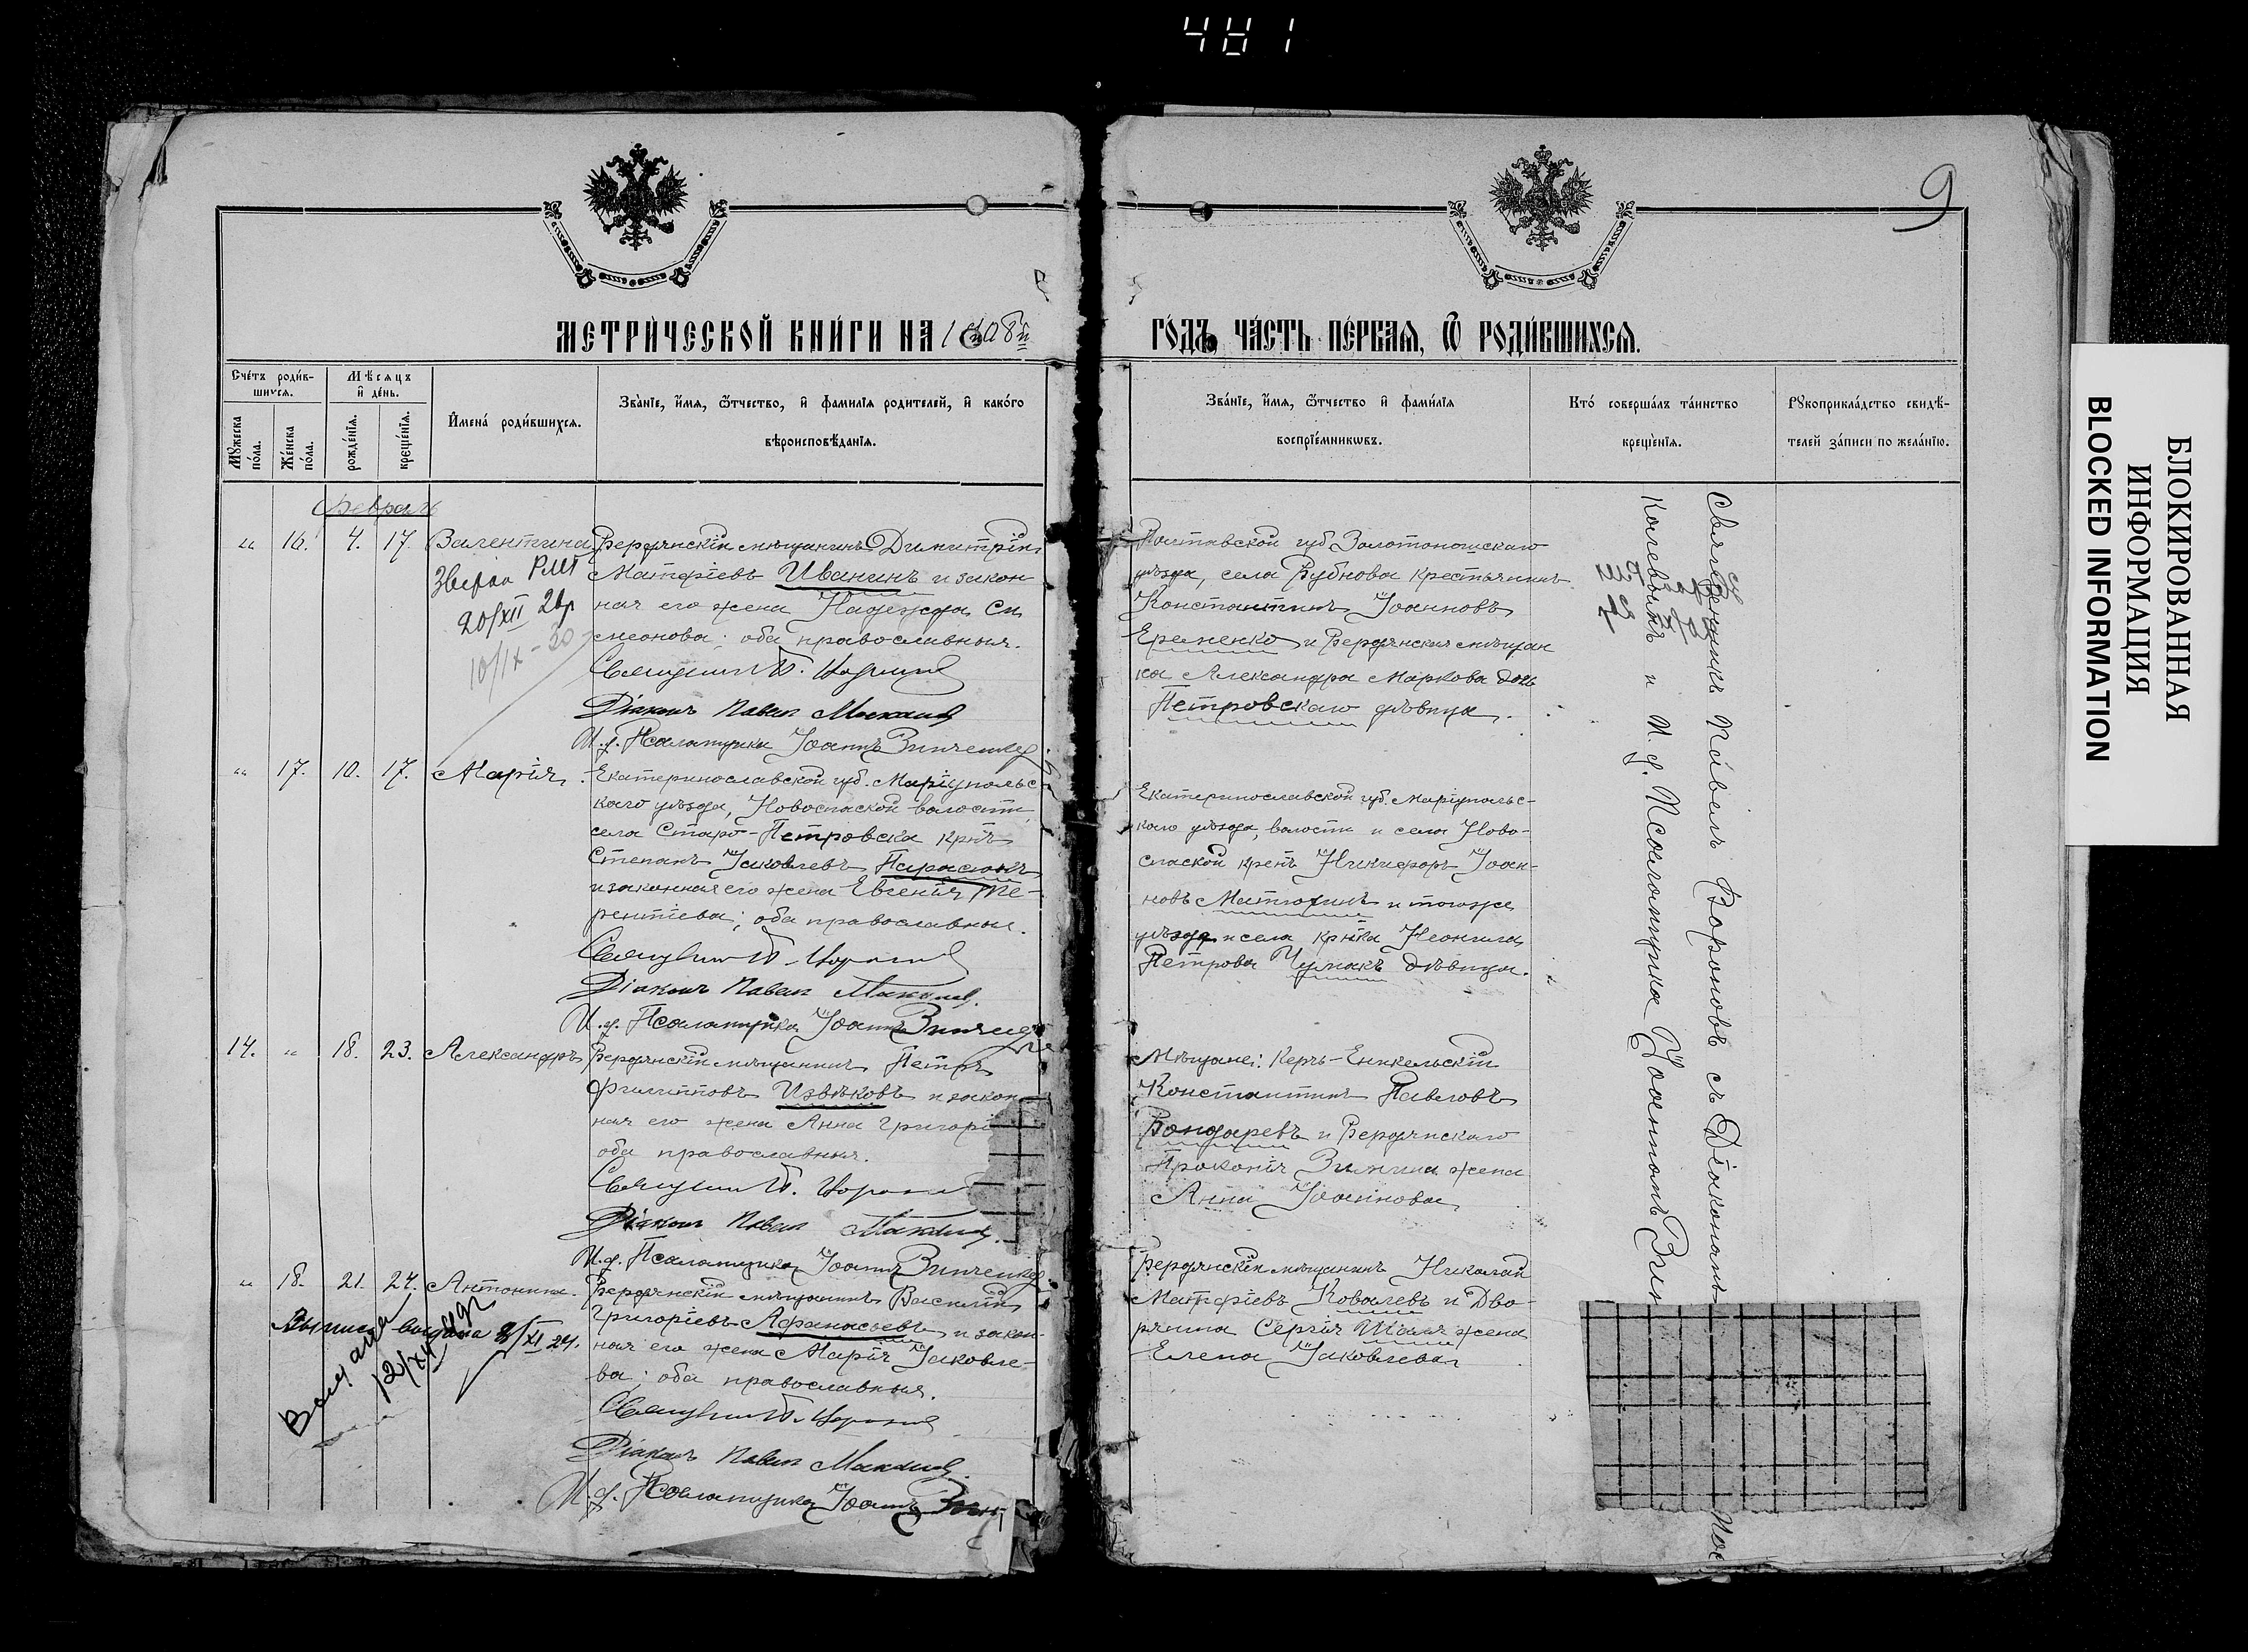 481
9
МЕТРИ́ЧЕСКОЙ КНИ́ГИ НА 1908й
ГО́ДЪ, ЧА́СТЬ ПЕ́РВАЯ, Ѿ РОДИ́ВШИХСЯ.
Сче́тъ роди́в-
шихся.
Мꙋ́жеска по́ла.
Же́нска по́ла.
Мѣ́сяцъ
и́ де́нь.
рожде́нїя.
креще́нїя.
И҆мена́ роди́вшихся.
Зва́нїе, и́мя, ѻ҆́тчество, и҆ фами́лїя роди́телей, и҆ како́го
вѣроисповѣ́данїя.
Зва́нїе, и́мя, ѻ҆́тчество и҆ фами́лїя
воспрїе́мникѡвъ.
Кто́ соверша́лъ та́инство
креще́нїя.
Рꙋкоприкла́дство свидѣ́-
телей за́писи по жела́нїю.
Февраль
" 16. 4. 17. Валентина
20/XII 21р
10/IX-30
Бердянскій мѣщанинъ Димитрій
Матѳіевъ Иванинъ и закон-
ная его жена Надежда Си
меонова; оба православныя.
Священникъ П. Воронов
Діаконъ Павел
И. д. Псаломщика Іоаннъ Зинченко
Полтавской губ. Золотоношскаго
уѣзда, села Бубнова крестьянинъ
Константинъ Іоанновъ
Еременко и Бердянская мѣщан
ка Александра Маркова дочь
Петровскаго дѣвица.
" 17. 10. 17. Марія.
Екатеринославской губ. Маріупольс-
каго уѣзда, Новоспаской волости
села Старо-Петровска крнъ
Степанъ Іаковлевъ Парасюкъ
и законная его жена Евгенія Те-
рентіева; оба православныя.
Священникъ П. Воронов
Діаконъ Павел
И. д. Псаломщика Іоаннъ Зинченко
Екатеринославской губ. Маріупольс-
каго уѣзда, волости и села Ново-
спаской крест. Никифоръ Іоан-
новъ и тогоже
уѣзда и села крнка Неонила
Петрова Чумакъ дѣвица.
14. " 18. 23. Александръ
Бердянскій мѣщанинъ Петръ
Филипповъ Извѣковъ и закон
ная его жена Анна Григорі
оба православныя.
Священникъ П. Воронов
Діаконъ Павел
И. д. Псаломщика Іоаннъ Зинченко
Мѣщане: Керчь-Еникольскій
Константинъ Павловъ
Бондаревъ и Бердянскаго
Прокопія Зимина жена
Анна Іоаннова
" 18. 21. 24. Антонина.
Выпись выдана 8/XI 24.
Выдана
Бердянскій мѣщанинъ Василій
Григоріевъ Аѳанасьевъ и закон-
ная его жена Марія Іаковле-
ва; оба православныя.
Священникъ П. Воронов
Діаконъ Павел
И. д. Псаломщика Іоаннъ Зин
Бердянскій мѣщанинъ Николай
Матѳіевъ Ковалевъ и Дво-
рянина Сергія жена
Елена Іаковлева
Священникъ Павелъ Вороновъ съ Діакономъ
и И. д. Псаломщика Іоанномъ Зин
БЛОКИРОВАННАЯ
ИНФОРМАЦИЯ
BLOCKED INFORMATION